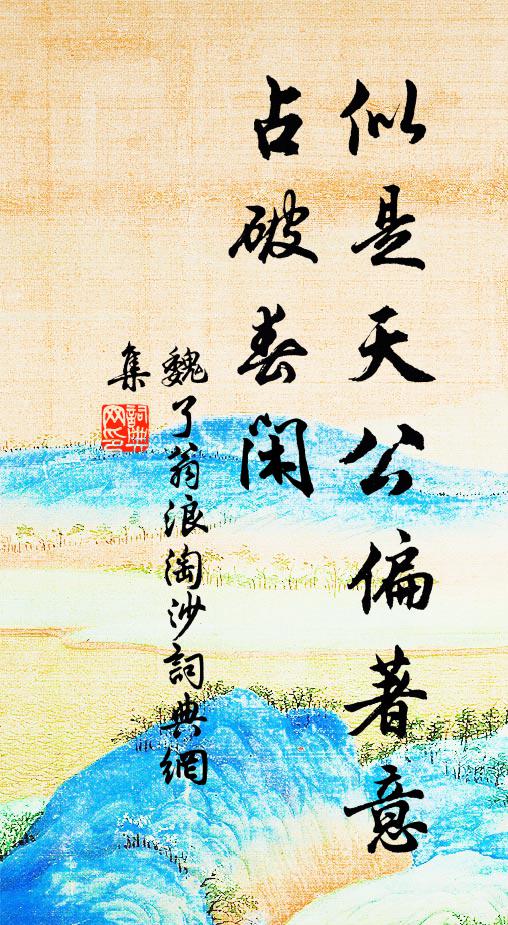 似是天公偏著意
占破春閑
魏了翁浪淘沙詞典網
集
詞典網印